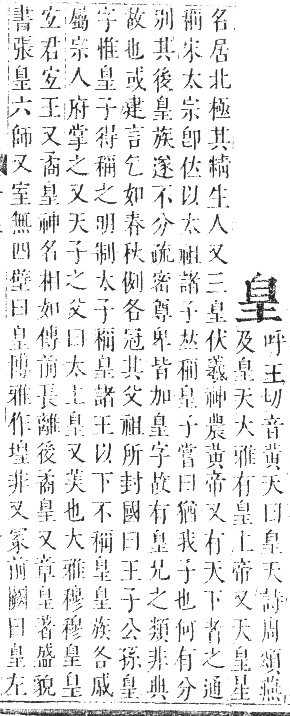 皇
呼王切音黃天曰皇天詩周頌燕
及皇天大雅有皇上帝又天皇星
名居北極其精生人又三皇伏羲神農黃帝又有天下者之通
稱宋太宗卽位以太祖諸子𠀤稱皇子嘗曰猶我子也何有分
別其後皇族遂不分疏密尊卑皆加皇字故有皇兄之類非典
故也或建言乞如春秋例各冠其父祖所封國曰王子公孫皇
字惟皇子得稱之明制太子稱皇諸王以下不稱皇皇族各戚
屬宗人府掌之又天子之父曰太上皇又美也大雅穆穆皇皇
宐君宐王又矞皇神名相如傳前長離後矞皇又章皇著盛貌
書張皇六師又室無四壁曰皇博雅作堭非又冢前闕曰皇左